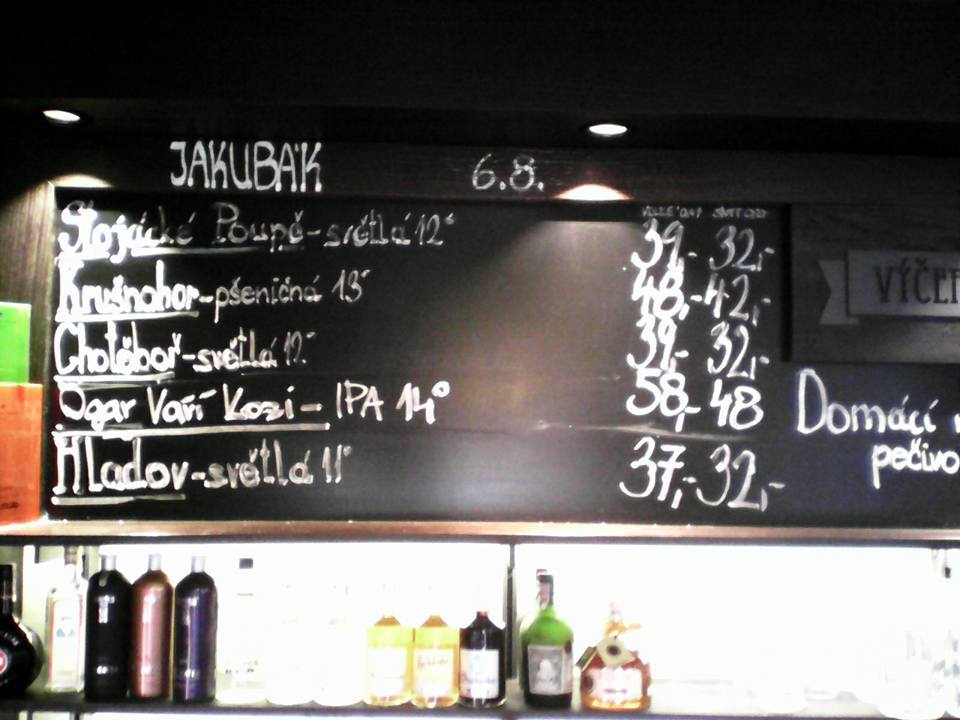 JAKUBÁK 6.8.
Stojácké Poupě - světlá 12° 39,- 32,-
Krušnohor - pšeničná 13° 48,- 42,-
Chotěboř - světlá 12° 39,- 32,-
Ogar Vaří Kozi - IPA 14° 58,- 48
Hladov - světlá 11° 37,- 32,-
Domácí
pečivo